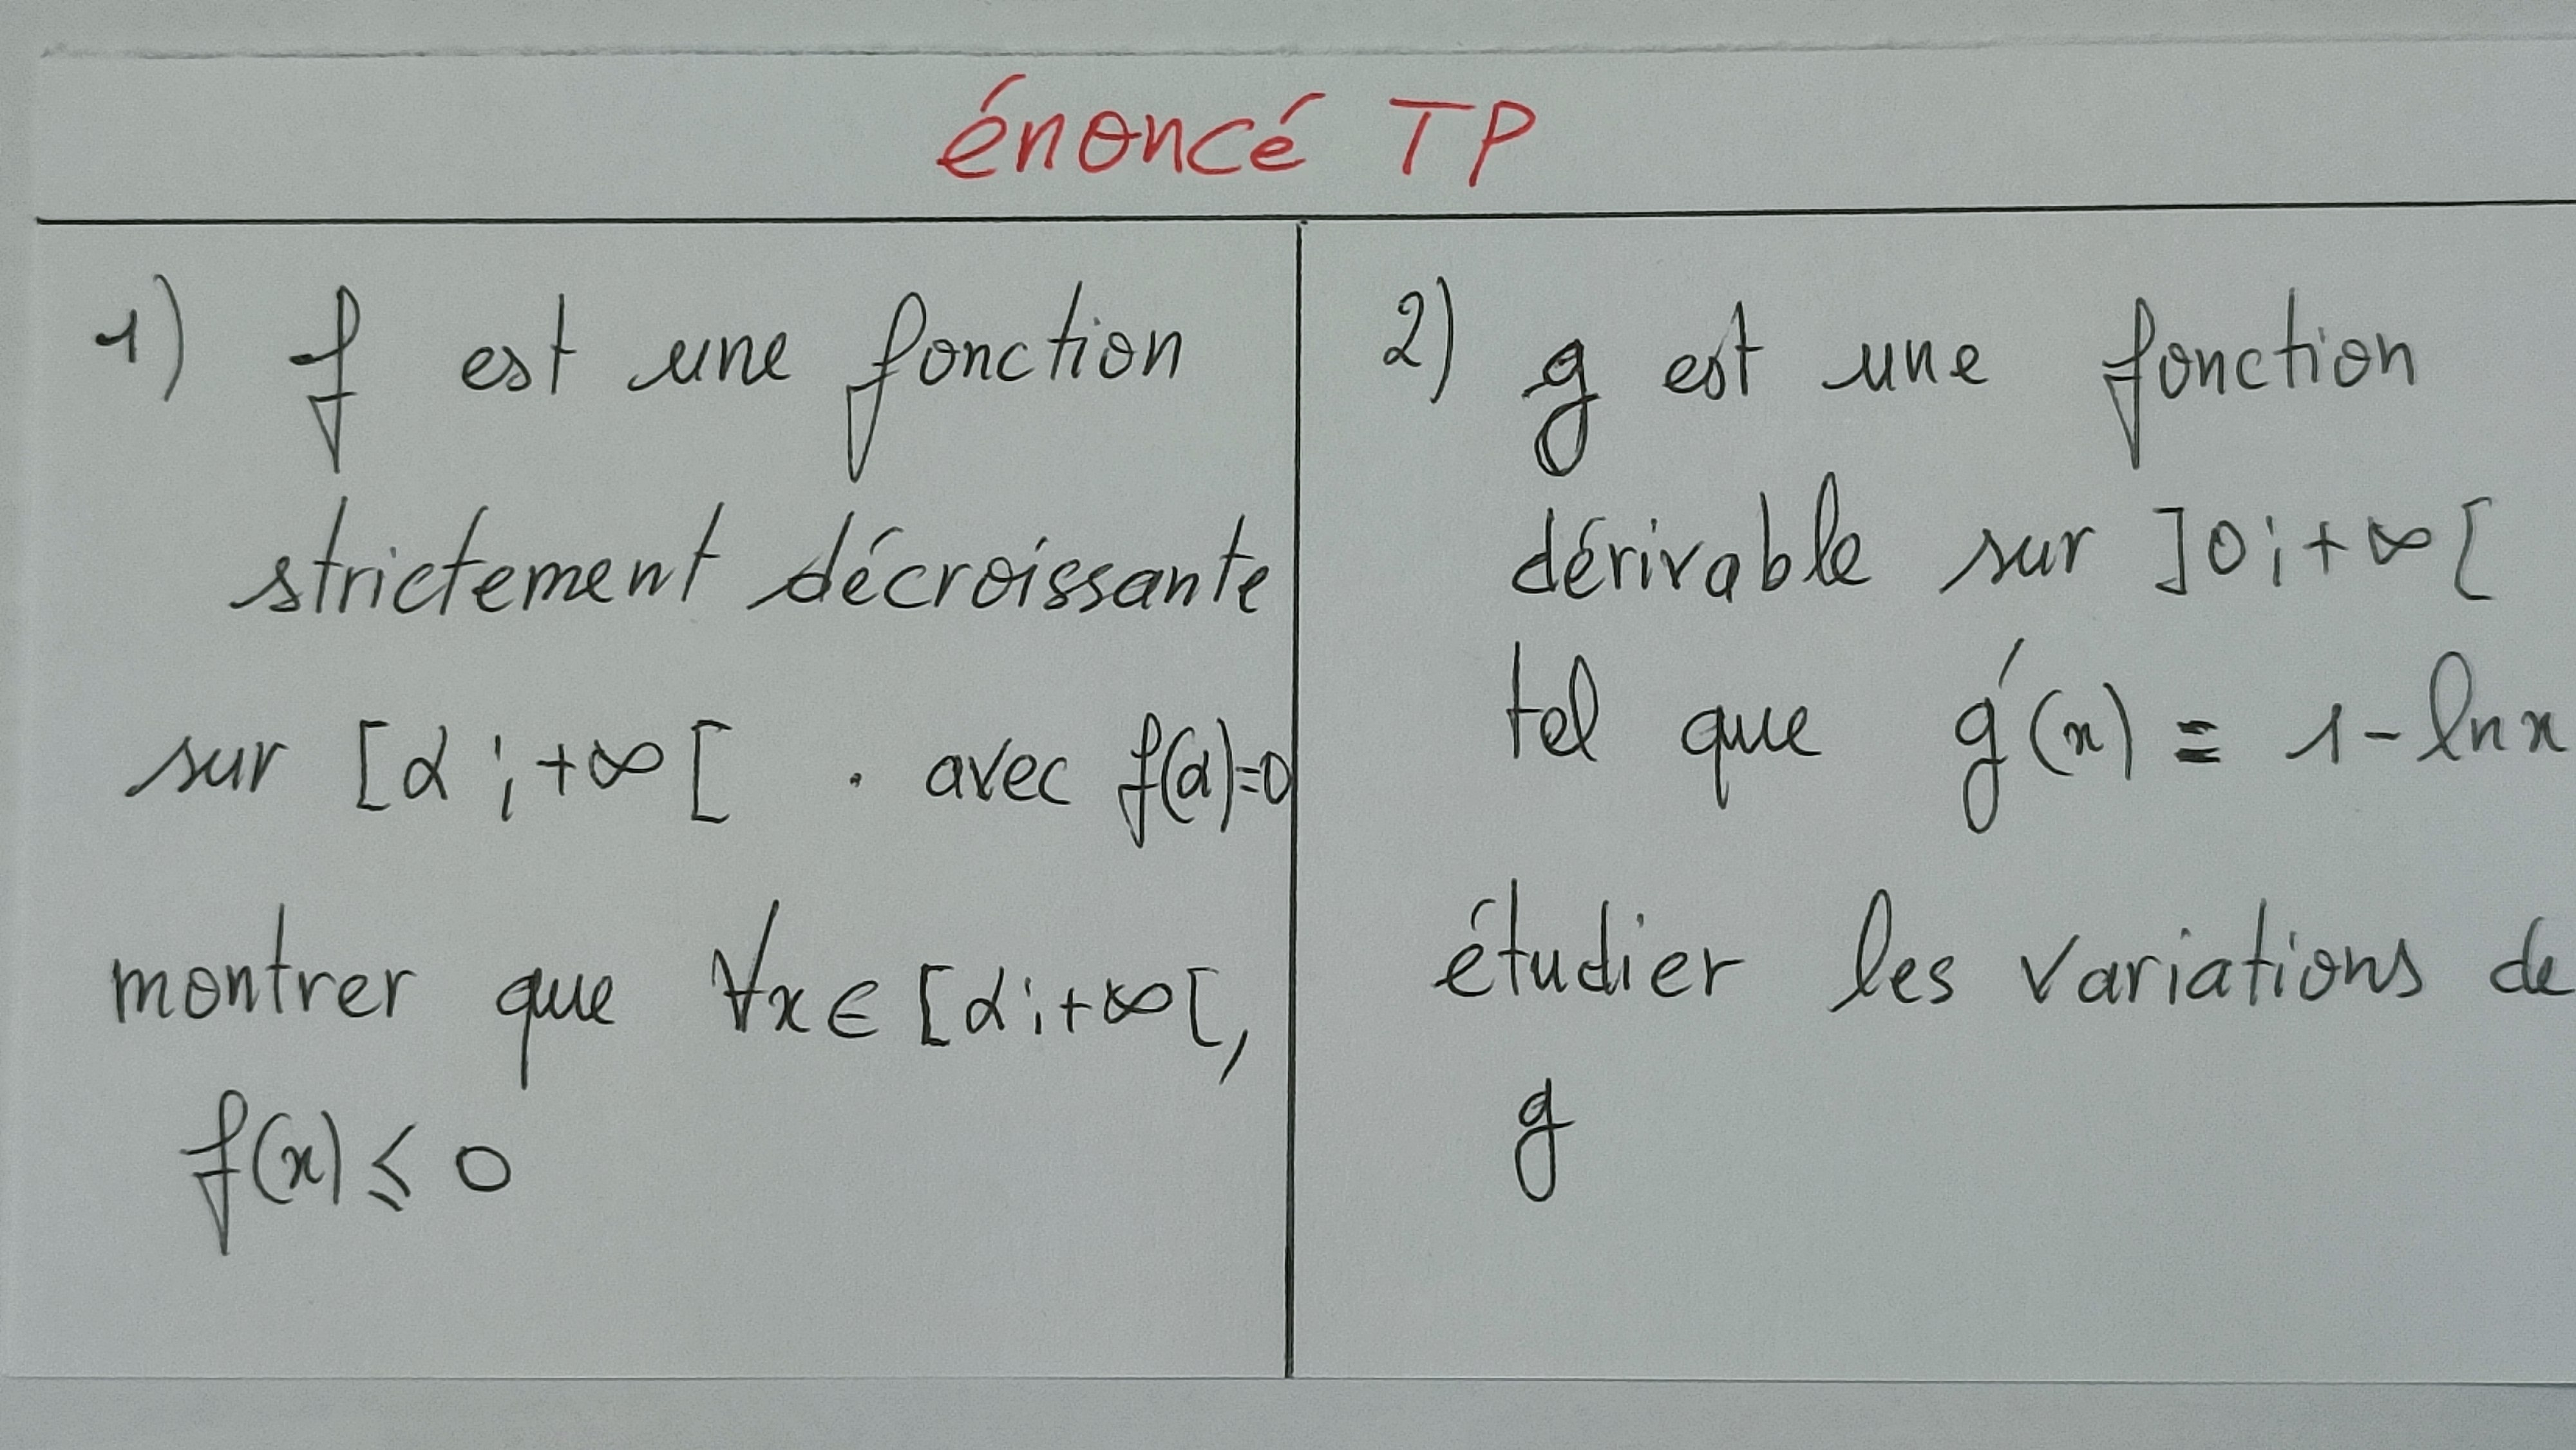 énoncé TP
1) f est une fonction
strictement décroissante
sur [α ; +∞[ . avec f(α)=0
montrer que ∀x ∈ [α ; +∞[,
f(x) ⩽ 0
2) g est une fonction
dérivable sur ]0 ; +∞[
tel que g'(x) = 1 - ln x
étudier les variations de
g